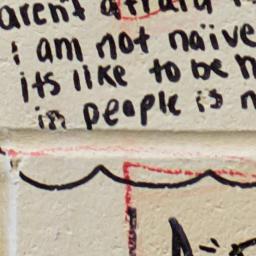 arent afraid
i am not naïve
its like to be
in people is